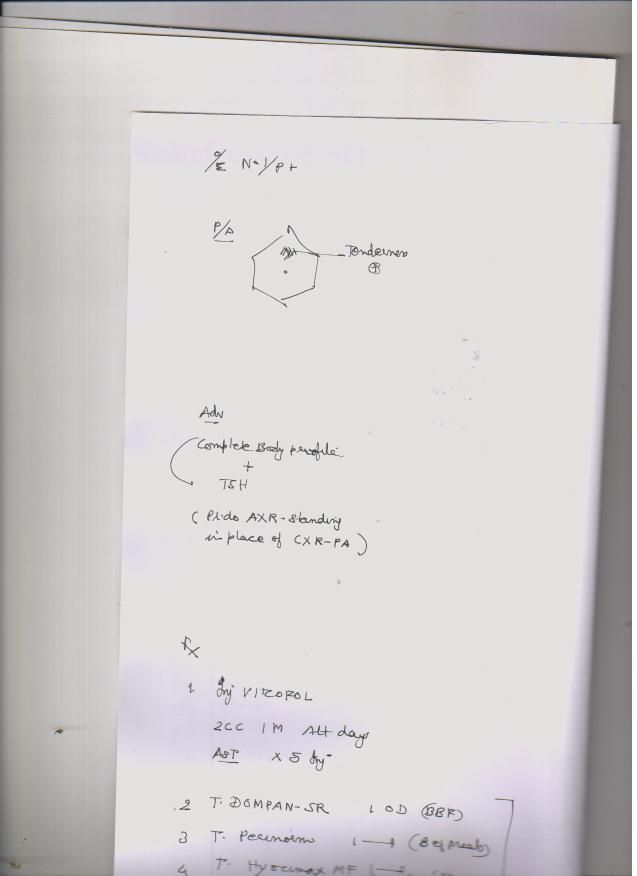 O/E N-1/P+
P/A
Tenderness
+
Adv
Complete Body profile
+
TSH
(Pl. do AXR-standing
in place of CXR-PA)
Rx
1. Inj VITCOFOL
2CC IM Alt days
AST x 5 Inj
2 T. DOMPAN-SR 1 OD (BBF)
3 T. Perinorm 1 → (Bef meals)
4 T. MF